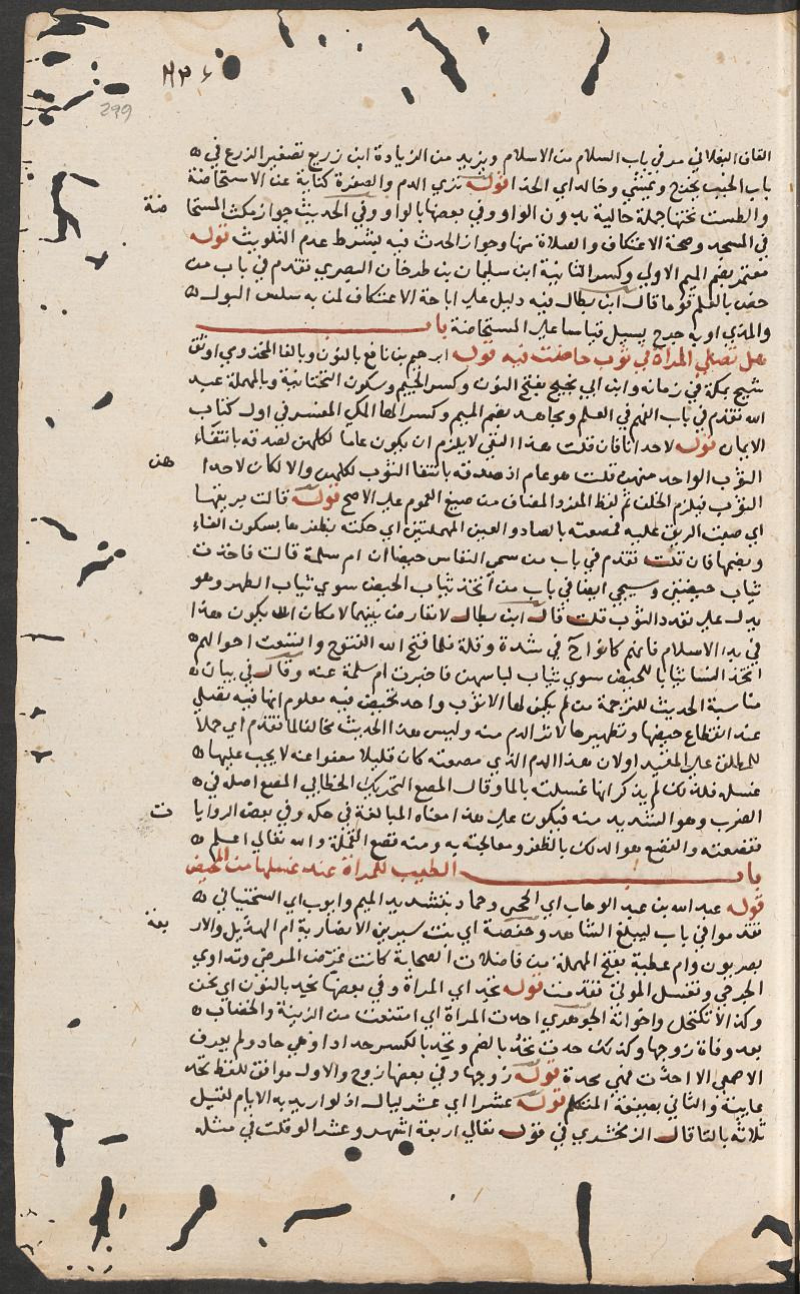 ٢٣٤
299
القاف البغلاني مر في باب السلام من الاسلام ويزيد من الزيادة ابن زريع تصغير الزرع في
باب الجنب يخرج ويمشي وخالد اي الحذا قوله تري الدم والصفرة كناية عن الاستحاضة
والطست تحتها جملة حالية بدون الواو وفي بعضها بالواو وفي الحديث جواز مكث المستحا
ضة
في المسجد وصحة الاعتكاف والصلاة منها وجواز الحدث فيه بشرط عدم التلويث قوله
معتمر بضم الميم الاولي وكسر الثانية ابن سليمان بن طرخان البصري تقدم في باب من
خص بالعلم قوما قال ابن بطال فيه دليل علي اباحة الاعتكاف لمن به سلس البول
والمذي او به جرح يسيل قياسا علي المستحاضة باب
هل تصلي المراة في ثوب حاضت فيه قوله ابرهيم بن نافع بالنون وبالفا المخزومي اوثق
شيخ بمكة في زمانه وابن ابي نجيح بفتح النون وكسر الجيم وسكون التحتانية وبالمهملة عبد
الله تقدم في باب الفهم في العلم ومجاهد بضم الميم وكسر الها المكي المفسر في اول كتاب
الايمان قوله لاحدانا فان قلت هذا النفي لا يلزم ان يكون عاما لكلهن لصدقه بانتفاء
الثوب الواحد منهن قلت هو عام اذ صدقه بانتفا الثوب لكلهن والا لكان لاحدا
هن
الثوب فيلزم الخلف ثم لفظ المفرد المضاف من صيغ العموم علي الاصح قوله قالت بريقها
اي صبت الريق عليه فمصعته بالصاد والعين المهملتين اي حكته بظفرها بسكون الفاء
وبضمها فان قلت تقدم في باب من سمي النفاس حيضا ان ام سلمة قالت فاخذت
ثياب حيضتي وسيجي ايضا في باب من اتخذ ثياب الحيض سوي ثياب الطهر وهو
يدل علي تعدد الثوب قلت قال ابن بطال لا تعارض بينهما لامكان ان يكون هذا
في بدا الاسلام فانهم كانوا ح في شدة وقلة فلما فتح الله الفتوح واتسعت احوالهم
اتخذ النسا ثيابا للحيض سوي ثياب لباسهن فاخبرت ام سلمة عنه وقال في بيان
مناسبة الحديث للترجمة من لم يكن لها الا ثوب واحد تحيض فيه معلوم انها فيه تصلي
عند انقطاع حيضها وتطهيرها لاثر الدم منه وليس هذا الحديث مخالفا لما تقدم اي حملا
للمطلق علي المقيد او لان هذا الدم الذي مصعته كان قليلا معفوا عنه لا يجب عليها
غسله فلذلك لم يذكر انها غسلته بالما وقال المصع التحريك الخطابي المصع اصله في
الضرب وهو الشديد منه فيكون علي هذا معناه المبالغة في حكه وفي بعض الروايا
ت
فقصعته والقصع هو الدلك بالظفر ومعالجته به ومنه قصع القملة والله تعالي اعلم
باب الطيب للمراة عند غسلها من المحيض
قوله عبد الله بن عبد الوهاب اي الحجبي وحماد بتشديد الميم وايوب اي السختياني
تقدموا في باب ليبلغ الشاهد وحفصة اي بنت سيرين الانصارية ام الهذيل والار
بعة
بصريون وام عطية بفتح المهملة من فاضلات الصحابة كانت تمرض المرضي وتداوي
الجرحي وتغسل الموتي تقدمت قوله تحد اي المراة وفي بعضها نحد بالنون اي نحن
وكذا لا تكتحل واخواته الجوهري احدت المراة اي امتنعت من الزينة والخضاب
بعد وفاة زوجها وكذلك حدت تحد بالضم وتحد بالكسر حدادا وهي حاد ولم يعرف
الاصمعي الا احدت فهي محدة قوله زوجها وفي بعضها زوج والاول موافق للفظ تحد
غايبة والثاني بصيغة المتكلم قوله عشرا اي عشر ليال اذ لو اريد به الايام لقيل
ثلاثه بالتا قال الزمخشري في قوله تعالي اربعة اشهر وعشرا لو قلت في مثله